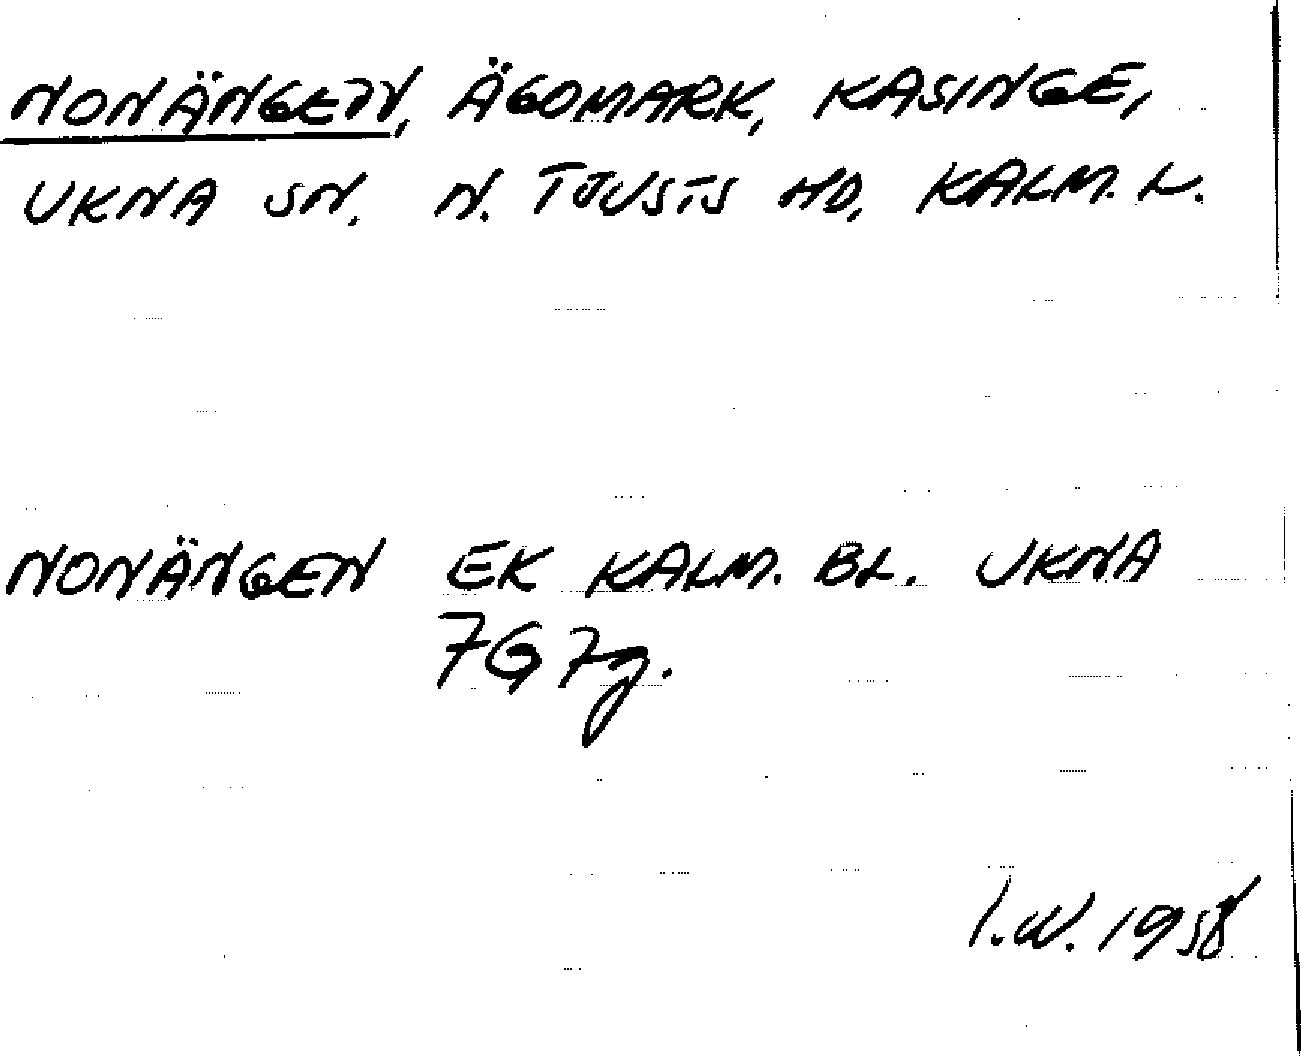 NONÄNGEN, ÄGOMARK, KASINGE,
UKNA SN. N. TJUSTS HD, KALM. L.
NONÄNGEN EK KALM. BL. UKNA
7G 7g.
I.W. 1958